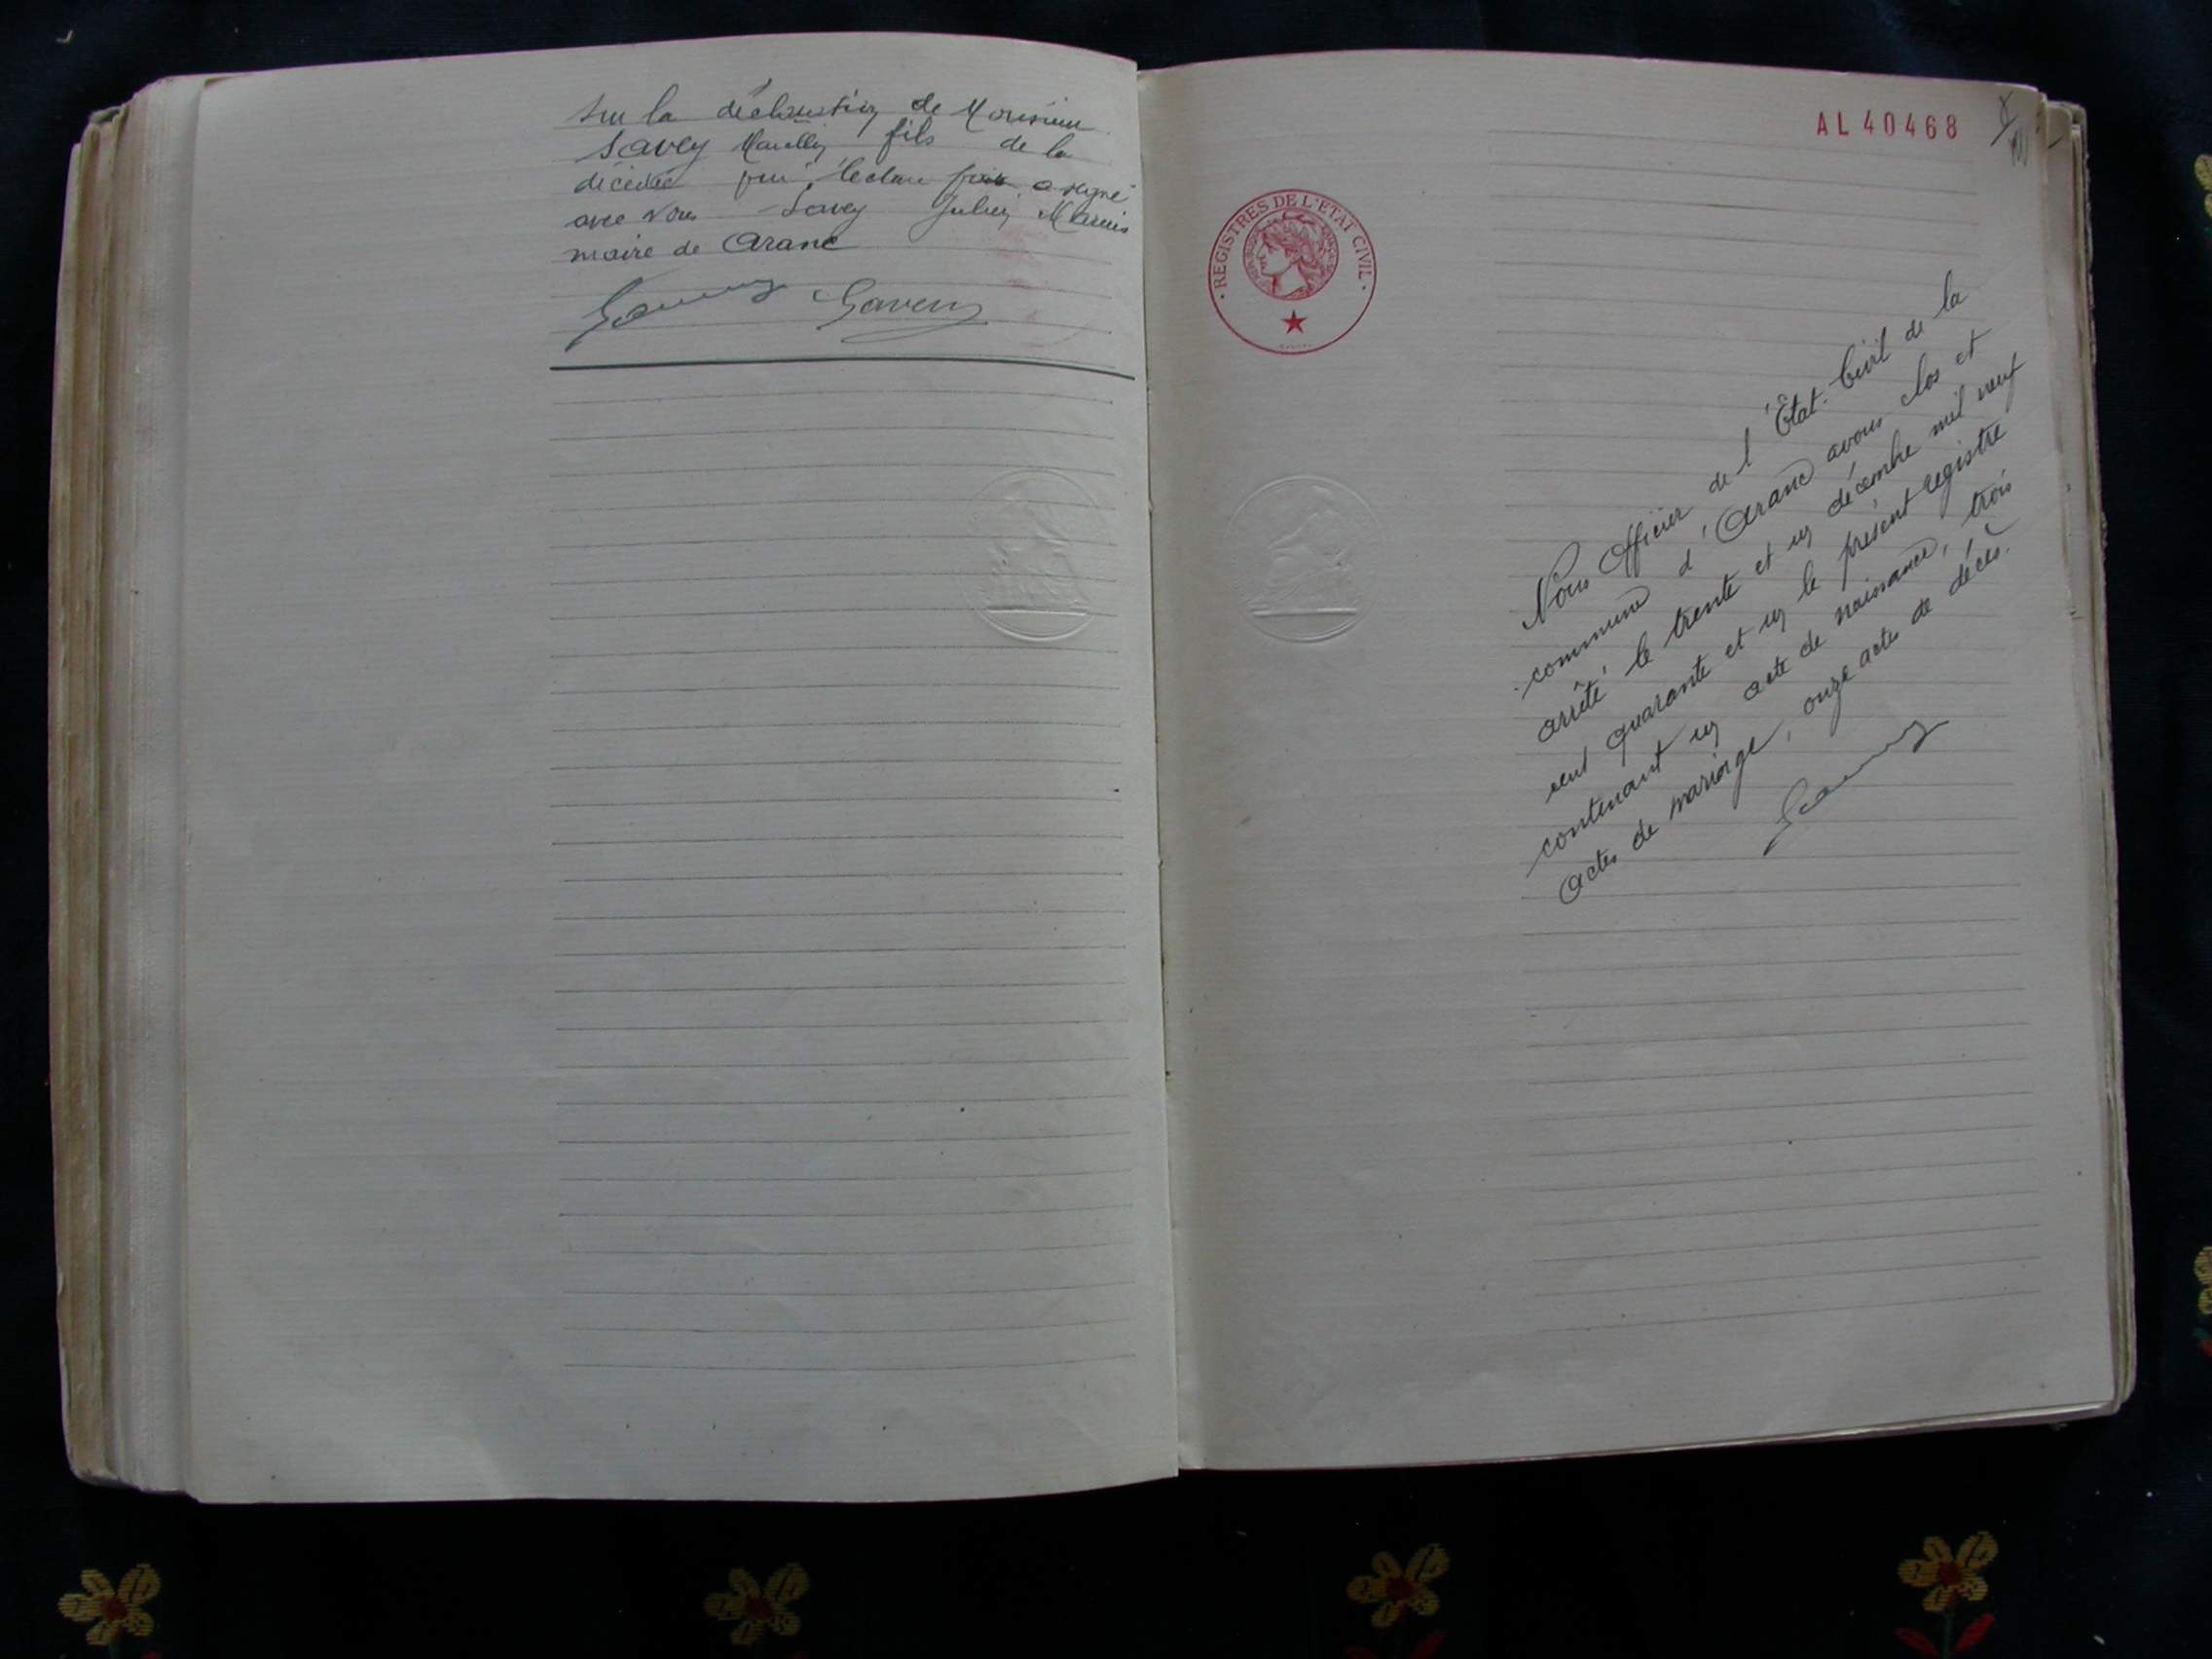 Sur la déclaration de Monsieur
Savey Marcellin fils de la
décédée qui, lecture faite a signé
avec Nous Savey Julien Marius
maire de Aranc
Savey
AL 40468
REGISTRES DE L'ETAT CIVIL
Nous Officier de l'Etat-Civil de la
commune d'Aranc avons clos et
arrêté le trente et un décembre mil neuf
cent quarante et un le présent registre
contenant un acte de naissance, trois
actes de mariage, onze actes de décès.